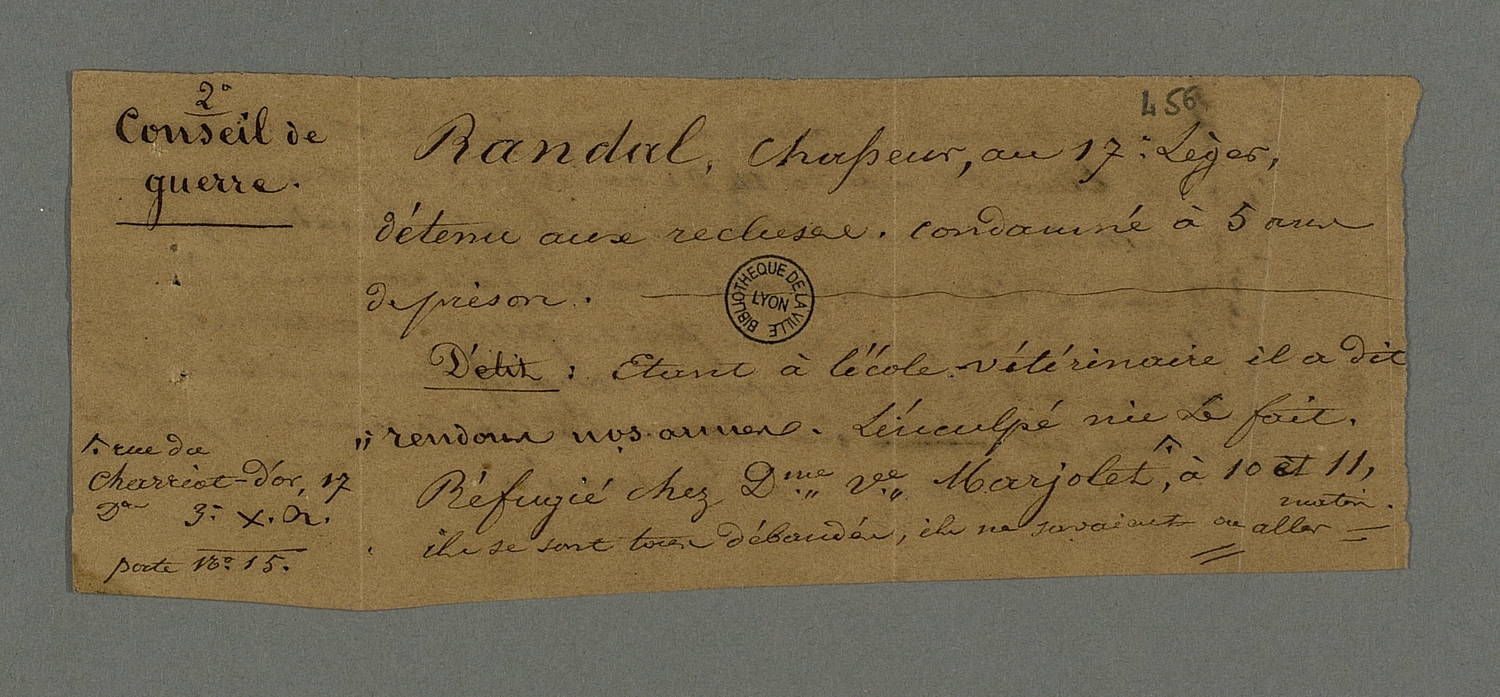 456
2e
Conseil de
guerre.
Randal, Chasseur, au 17e Lèger,
détenu aux recluses. condamné à 5 ans
de prison.
BIBLIOTHEQUE DE LA VILLE
LYON
Délit : Etant à l'école vétérinaire il a dit
„ rendons nos armes. L'inculpé nie Le fait.
Réfugié chez Dme Ve Marjolet, à 10 et 11,
matin.
ils se sont tous débandés, ils ne savaient ou aller =
rue du
Charriot-d'or, 17
3e X. R.
porte No 15.